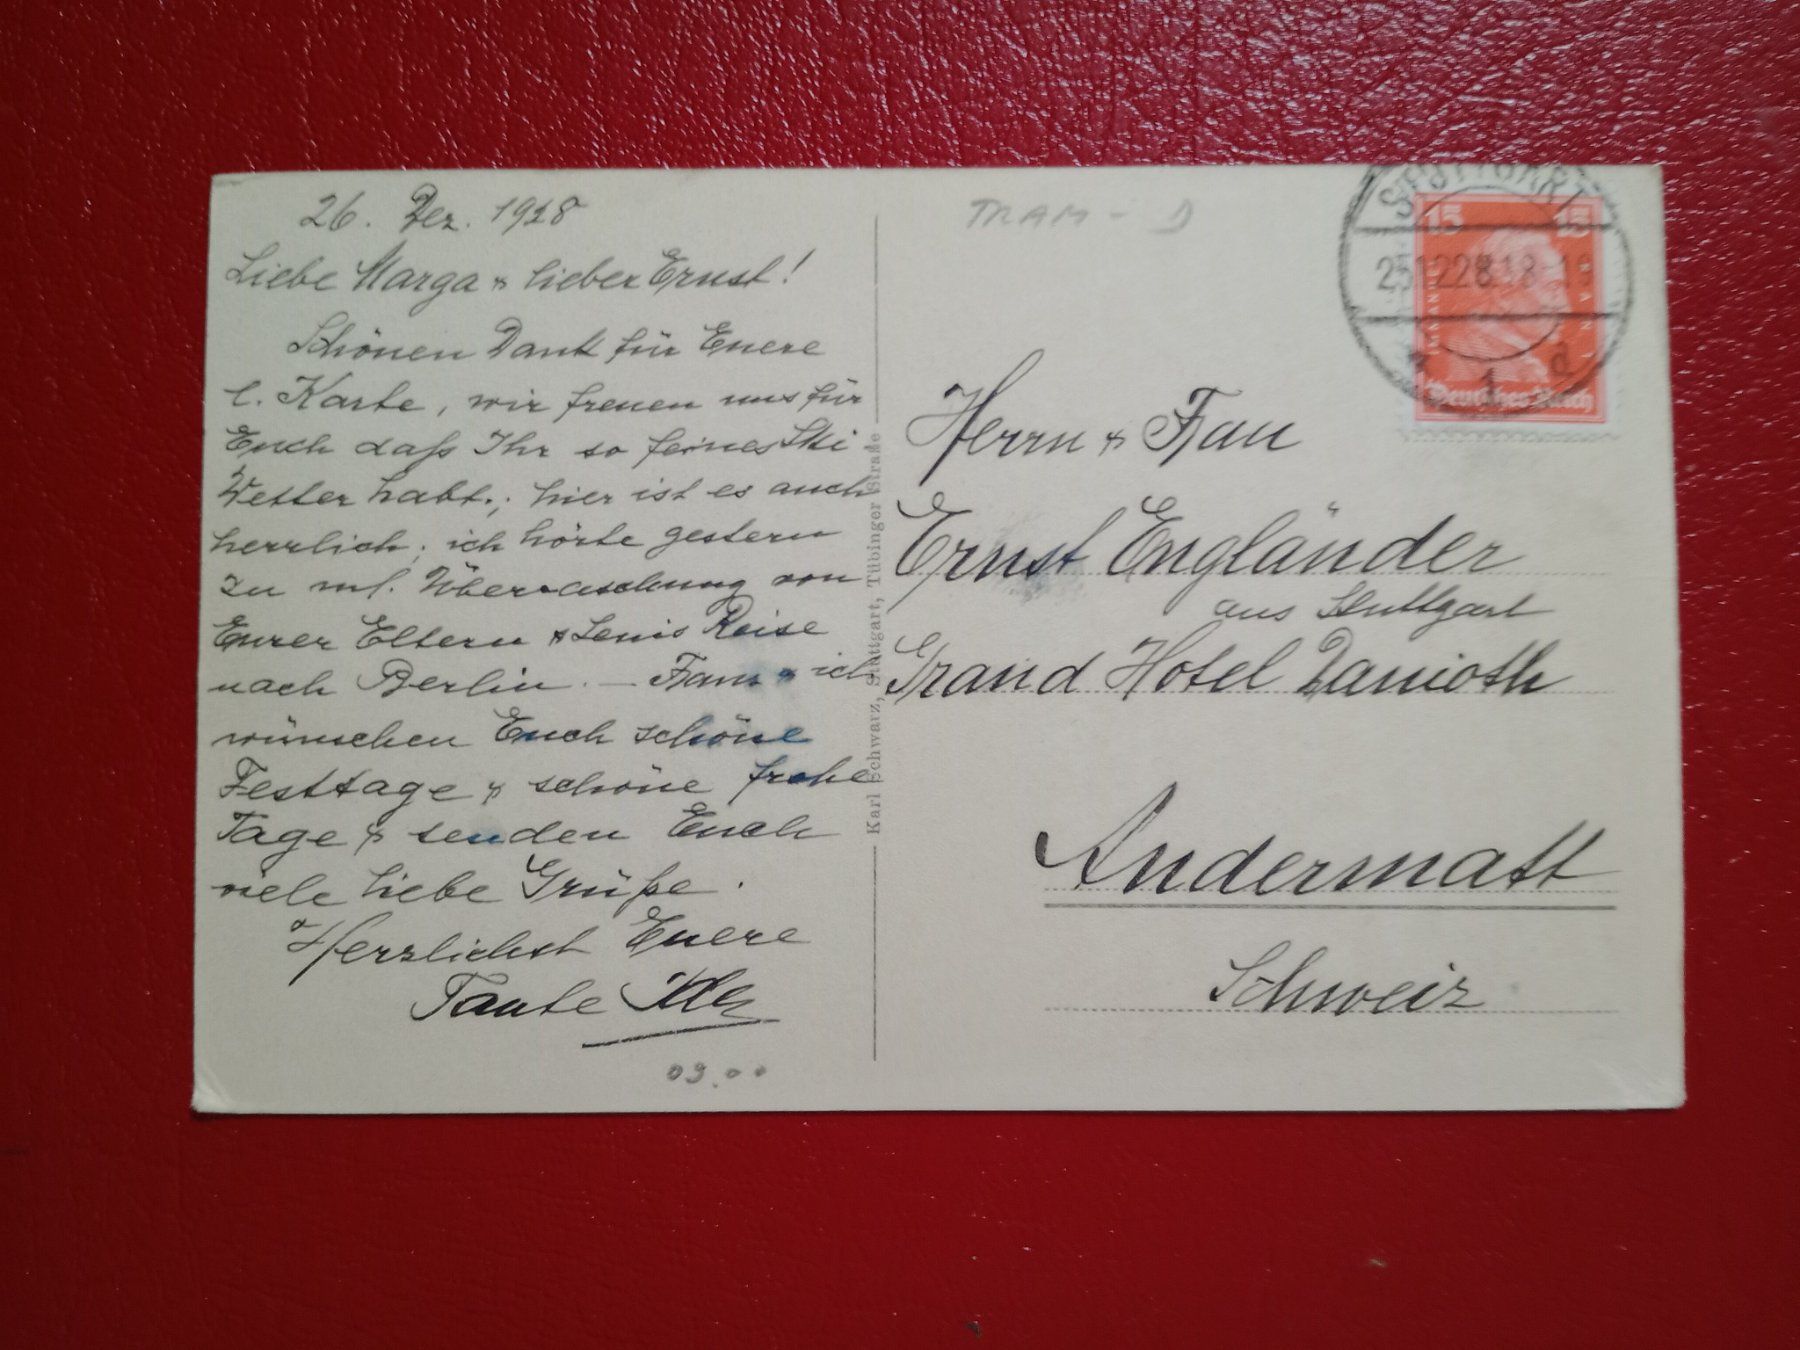 26. Dez. 1928
Liebe Marga & lieber Ernst!
Schönen Dank für Euere
l. Karte, wir freuen uns für
Euch daß Ihr so feines Ski
Wetter habt.; hier ist es auch
herrlich; ich hörte gestern
zu ml. Überraschung von
Eurer Eltern & Lenis Reise
nach Berlin. – & ich
wünschen Euch schöne
Festtage & schöne frohe
Tage & senden Euch
viele liebe Grüße.
Herzlichst Euere
Tante
09.00
Karl Schwarz, Stuttgart, Tübinger Straße
TRAM - D
STUTTGART
15 15
1
d
Deutsches Reich
Herrn & Frau
Ernst Engländer
aus Stuttgart
Grand Hotel Danioth
Andermatt
Schweiz